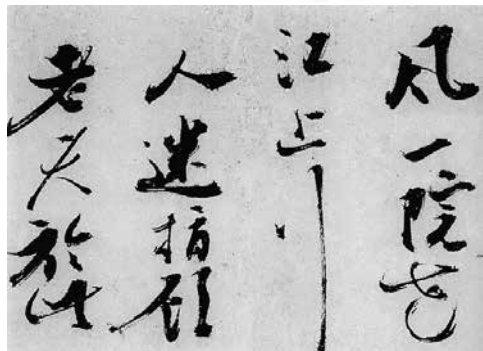 風一院花
江上行
人迷指顧
老夫於此